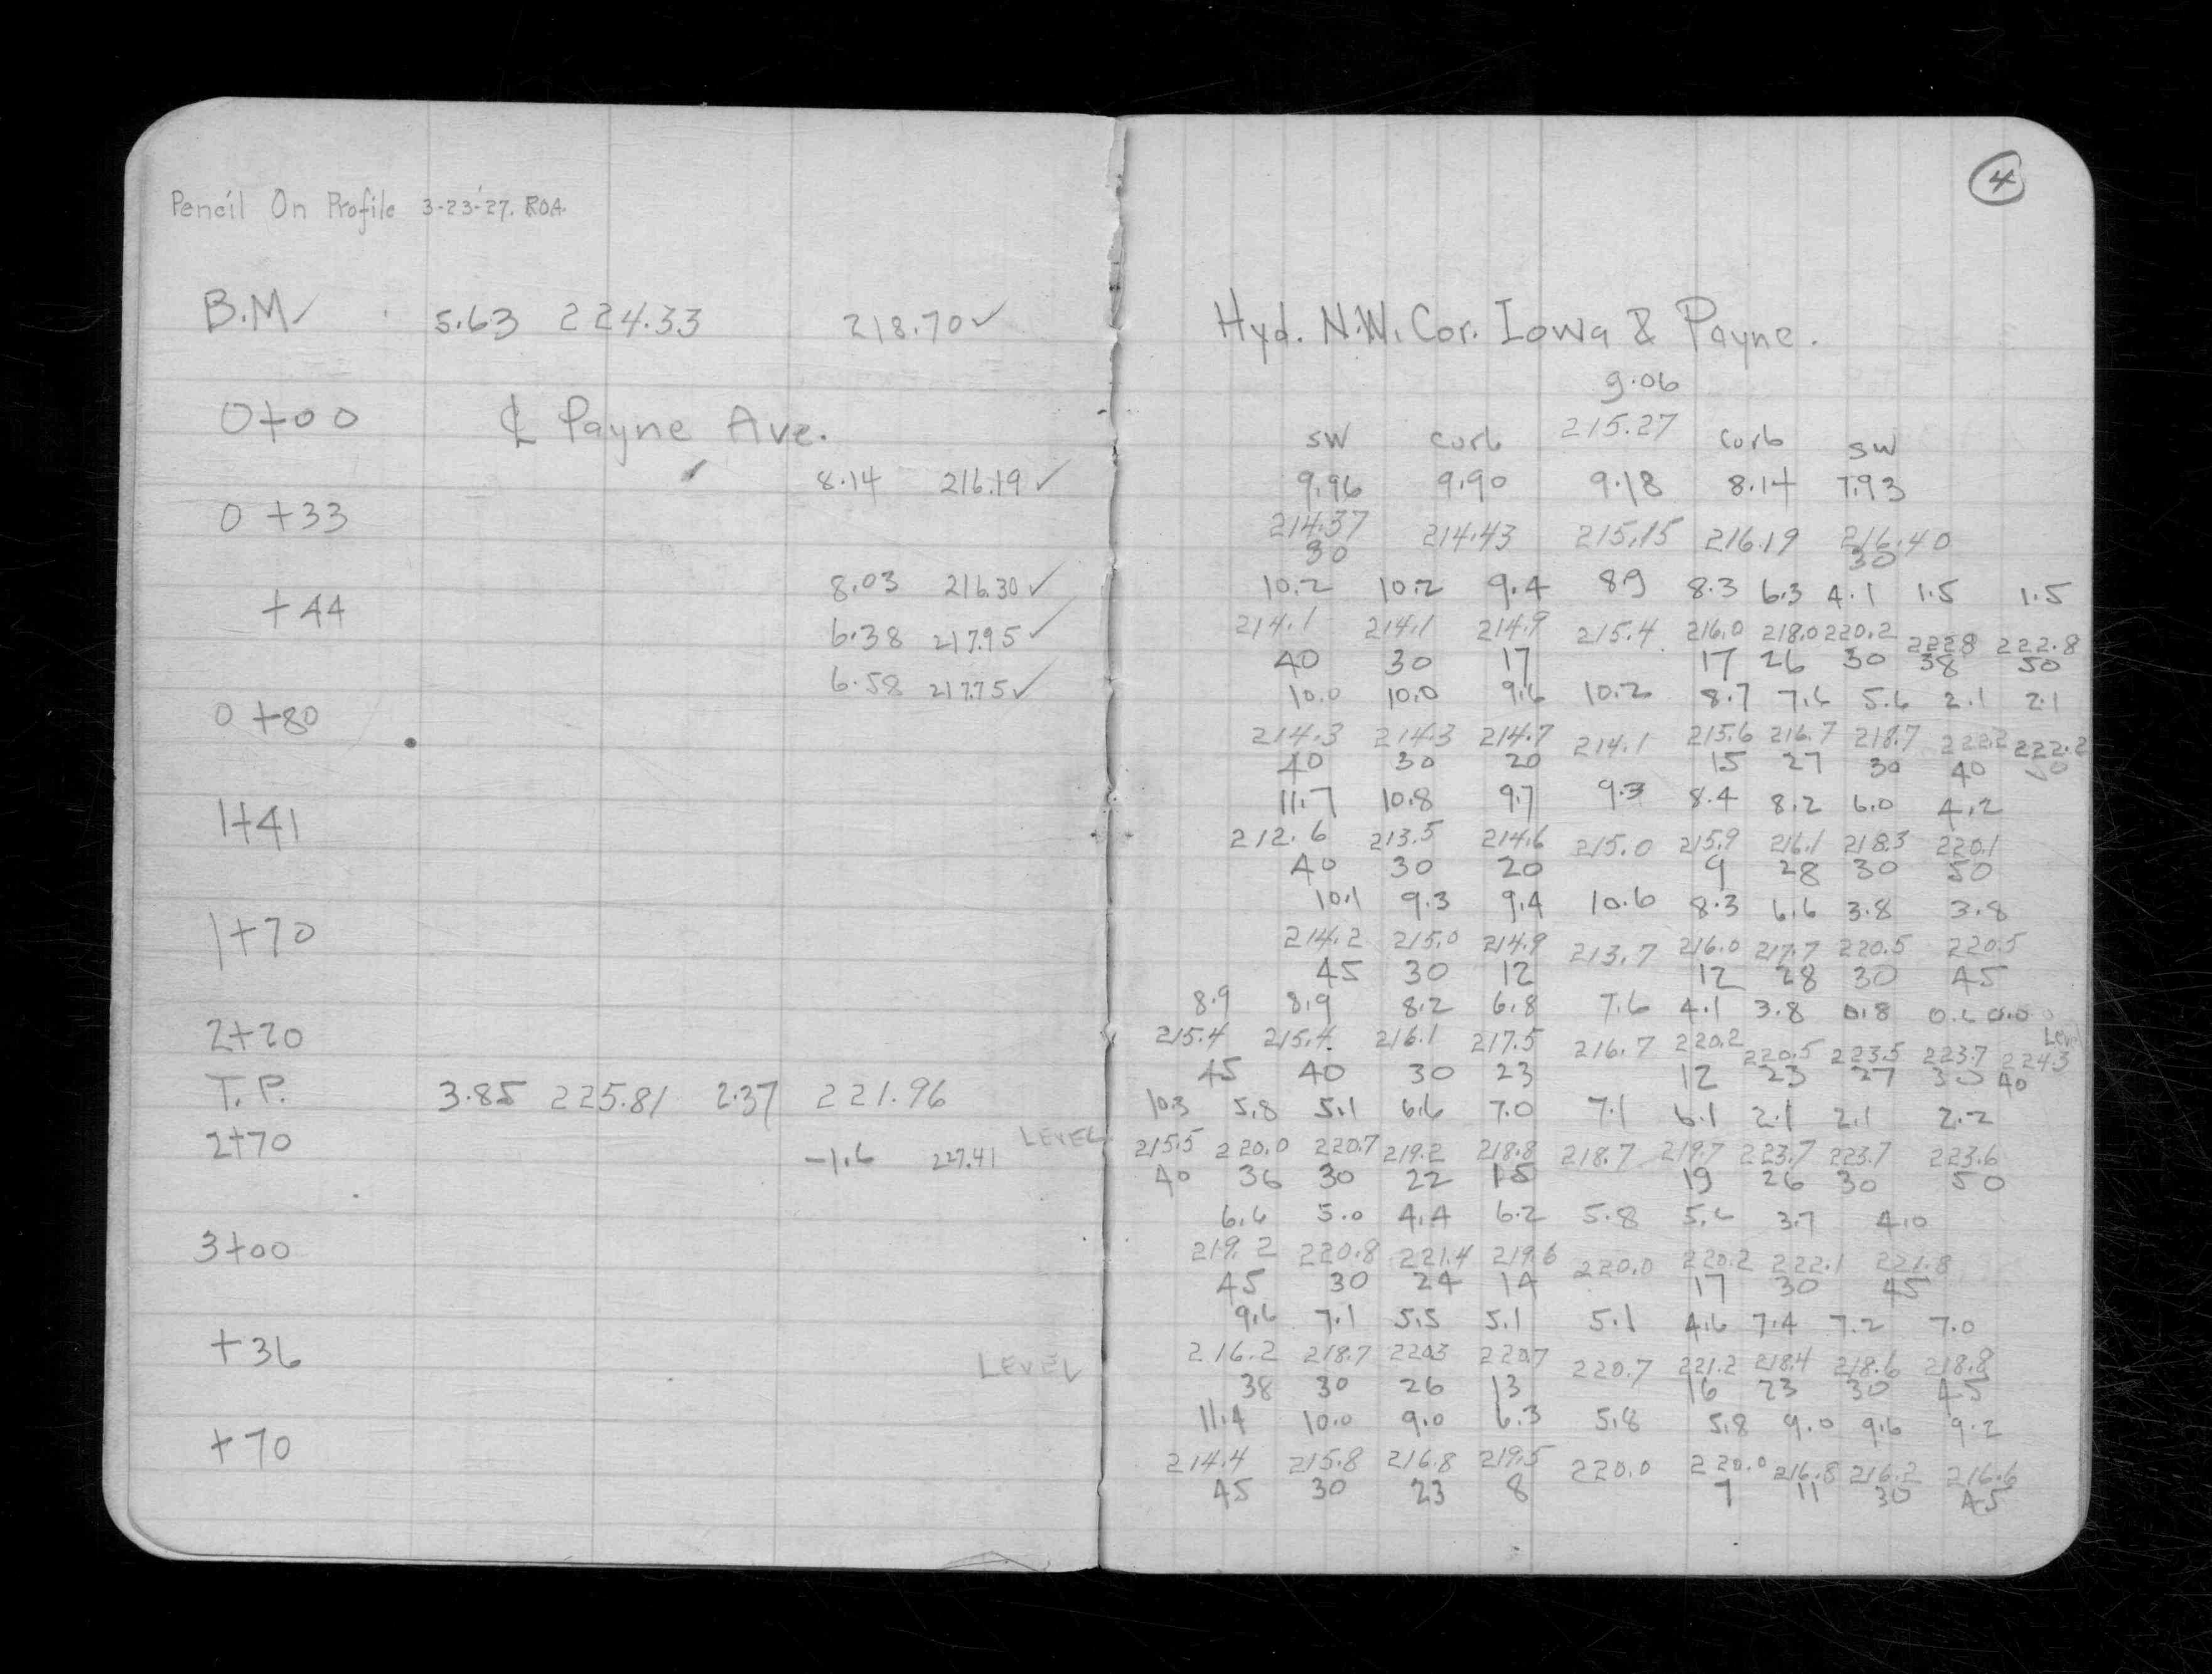 Pencil On Profile 3-23-'27. ROA.
B.M✓ 5.63 224.33 218.70✓
0+00 ℄ Payne Ave.
8.14 216.19✓
0+33
8.03 216.30✓
+44
6.38 217.95✓
6.58 217.75✓
0+80
1+41
1+70
2+20
T.P. 3.85 225.81 2.37 221.96
LEVEL
2+70 -1.6 227.41
3+00
+36 LEVEL
+70
4
Hyd. N.W. Cor. Iowa & Payne.
9.06
sw curb 215.27 curb sw
9.96 9.90 9.18 8.14 7.93
214.37 214.43 215.15 216.19 216.40
30 30
10.2 10.2 9.4 8.9 8.3 6.3 4.1 1.5 1.5
214.1 214.1 214.9 215.4 216.0 218.0 220.2 222.8 222.8
40 30 17 17 26 30 38 50
10.0 10.0 9.6 10.2 8.7 7.6 5.6 2.1 2.1
214.3 214.3 214.7 214.1 215.6 216.7 218.7 222.2 222.2
40 30 20 15 27 30 40 50
11.7 10.8 9.7 9.3 8.4 8.2 6.0 4.2
212.6 213.5 214.6 215.0 215.9 216.1 218.3 220.1
40 30 20 9 28 30 50
10.1 9.3 9.4 10.6 8.3 6.6 3.8 3.8
214.2 215.0 214.9 213.7 216.0 217.7 220.5 220.5
45 30 12 12 28 30 45
8.9 8.9 8.2 6.8 7.6 4.1 3.8 0.8 0.6 0.0
Level
215.4 215.4 216.1 217.5 216.7 220.2 220.5 223.5 223.7 224.3
45 40 30 23 12 23 27 30 40
10.3 5.8 5.1 6.6 7.0 7.1 6.1 2.1 2.1 2.2
215.5 220.0 220.7 219.2 218.8 218.7 219.7 223.7 223.7 223.6
40 36 30 22 15 19 26 30 50
6.6 5.0 4.4 6.2 5.8 5.6 3.7 4.0
219.2 220.8 221.4 219.6 220.0 220.2 222.1 221.8
45 30 24 14 17 30 45
9.6 7.1 5.5 5.1 5.1 4.6 7.4 7.2 7.0
216.2 218.7 220.3 220.7 220.7 221.2 218.4 218.6 218.8
38 30 26 13 16 23 30 45
11.4 10.0 9.0 6.3 5.8 5.8 9.0 9.6 9.2
214.4 215.8 216.8 219.5 220.0 220.0 216.8 216.2 216.6
45 30 23 8 7 11 30 45